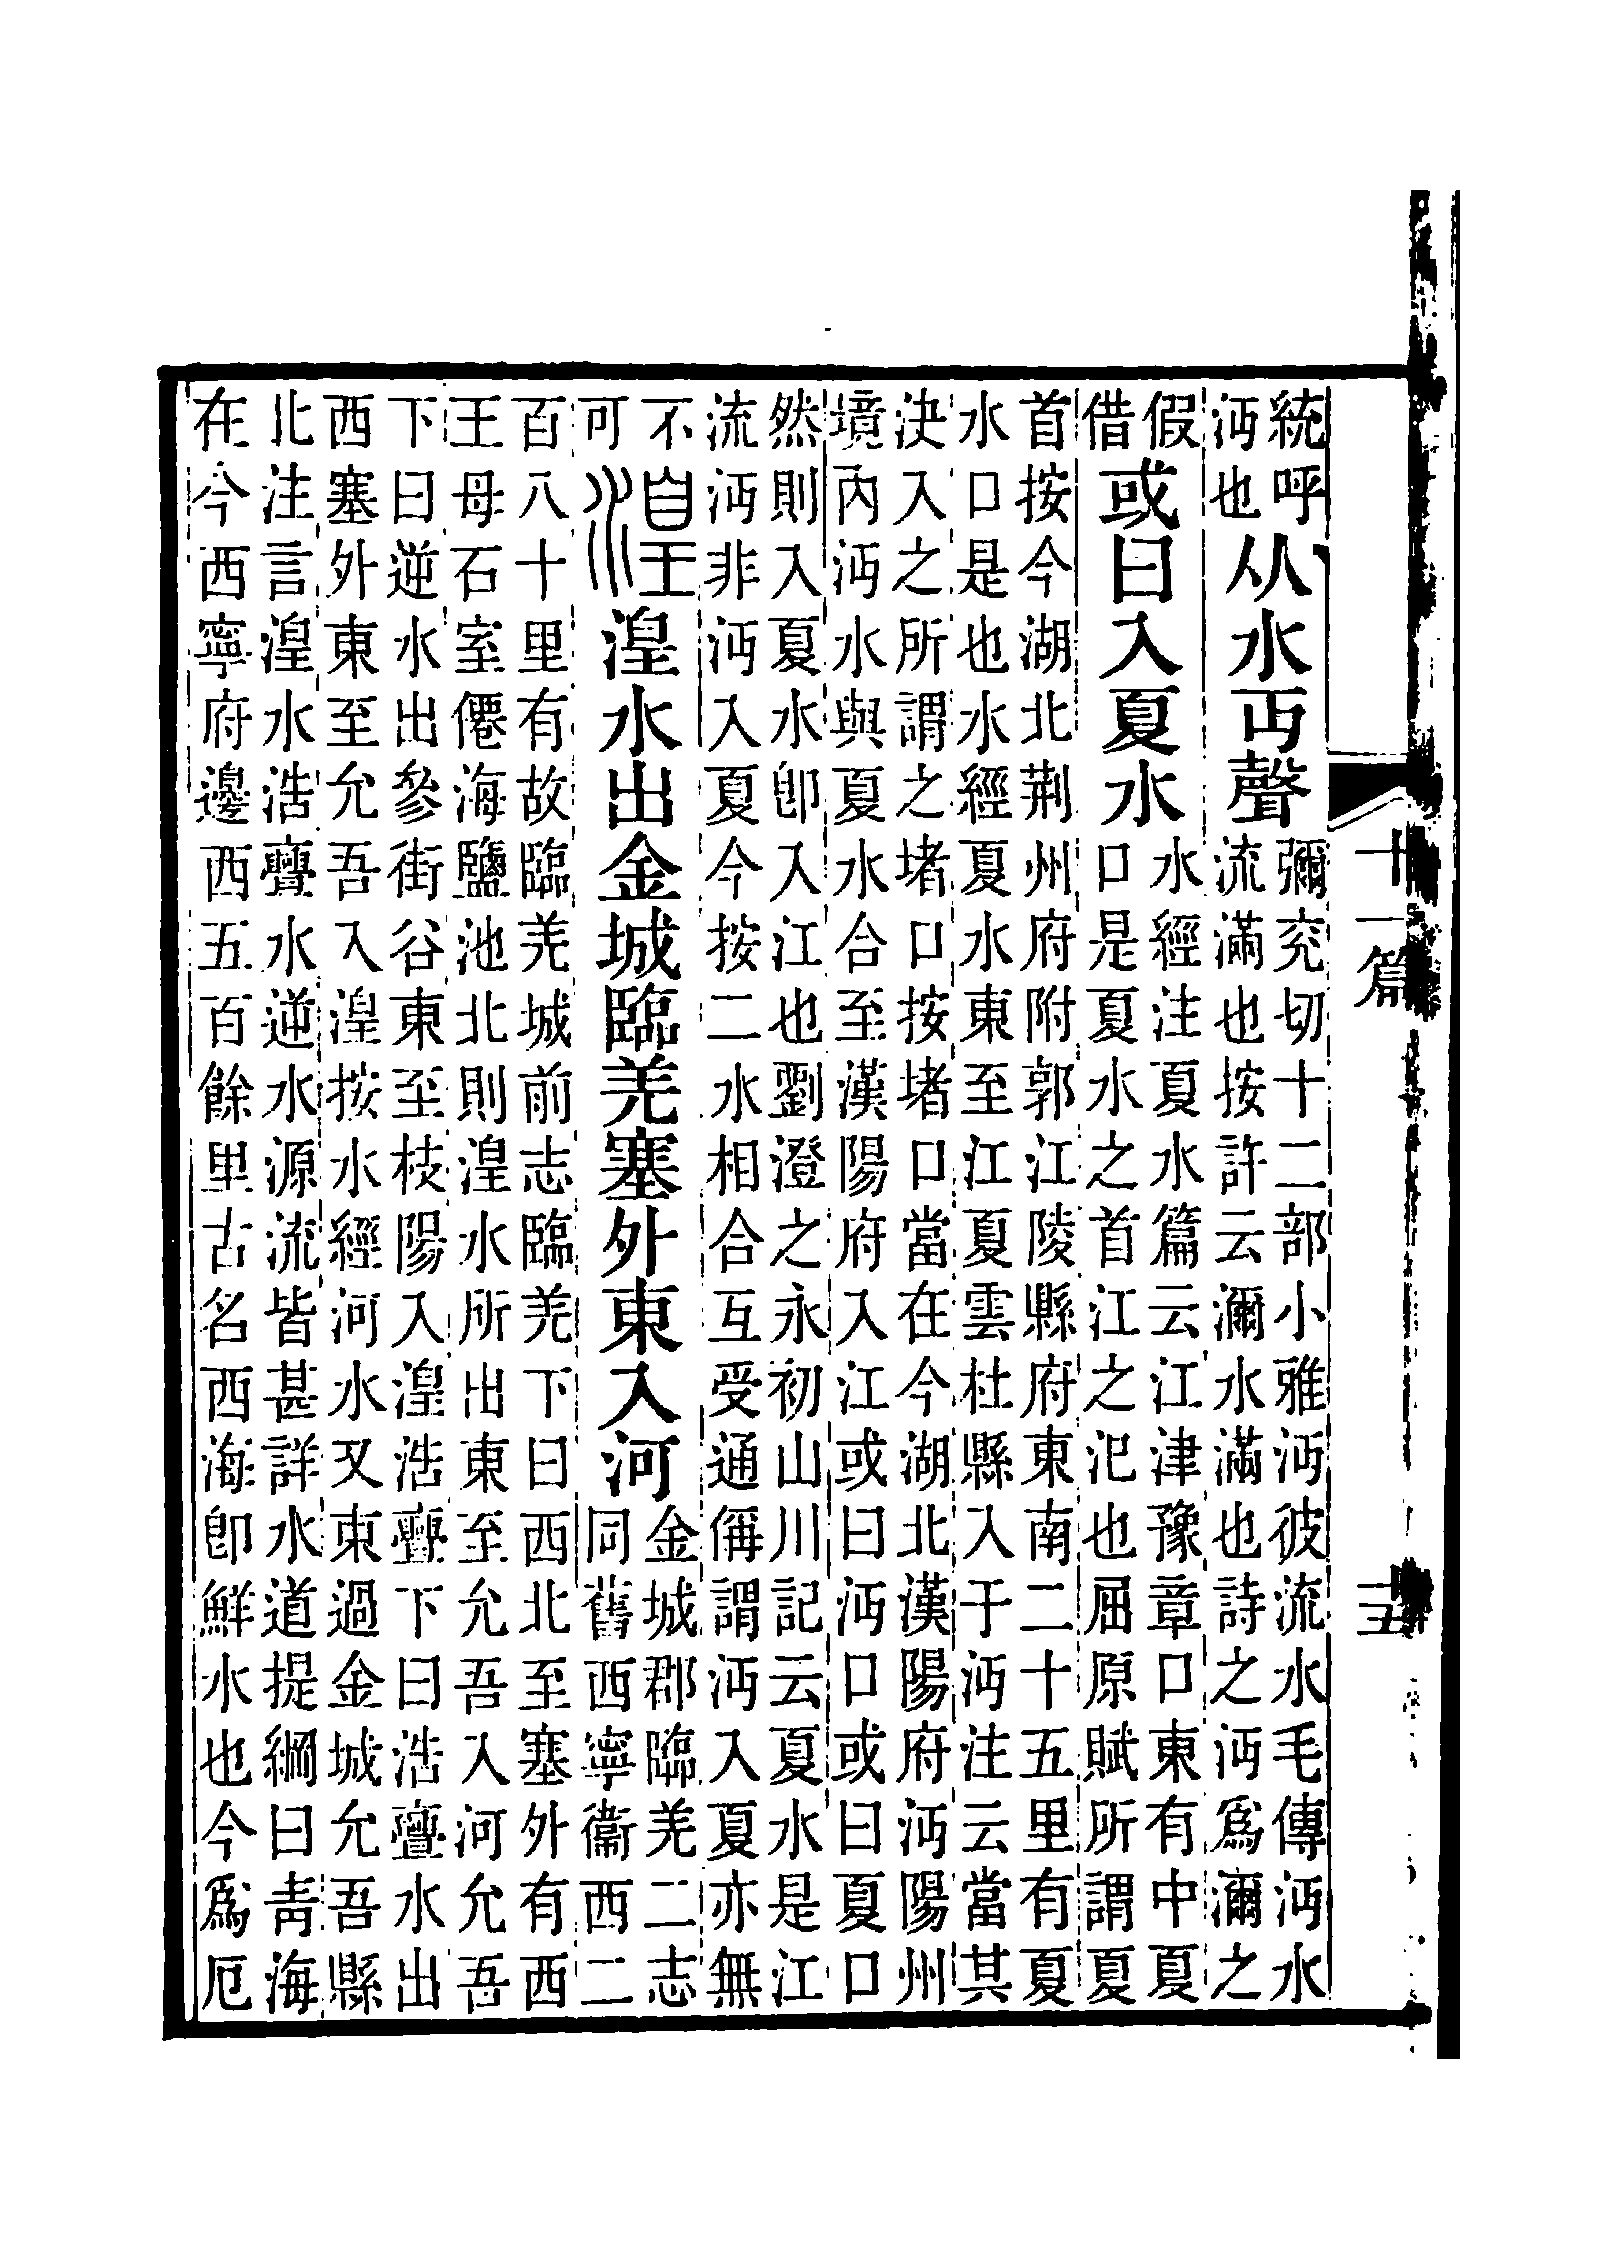 統呼
沔也
从水丏聲
彌兖切十二部小雅沔彼流水毛傳沔水
流滿也按許云瀰水滿也詩之沔爲瀰之
假
借
或曰入夏水
水經注夏水篇云江津豫章口東有中夏
口是夏水之首江之汜也屈原賦所謂夏
首按今湖北荆州府附郭江陵縣府東南二十五里有夏
水口是也水經夏水東至江夏雲杜縣入于沔注云當其
決入之所謂之堵口按堵口當在今湖北漢陽府沔陽州
境內沔水與夏水合至漢陽府入江或曰沔口或曰夏口
然則入夏水卽入江也劉澄之永初山川記云夏水是江
流沔非沔入夏今按二水相合互受通偁謂沔入夏亦無
不
可
湟
湟水出金城臨羌塞外東入河
金城郡臨羌二志
同舊西寧衞西二
百八十里有故臨羌城前志臨羌下曰西北至塞外有西
王母石室僊海鹽池北則湟水所出東至允吾入河允吾
下曰逆水出參街谷東至枝陽入湟浩亹下曰浩亹水出
西塞外東至允吾入湟按水經河水又東過金城允吾縣
北注言湟水浩亹水逆水源流皆甚詳水道提綱曰靑海
在今西寧府邊西五百餘里古名西海卽鮮水也今爲厄
十一篇